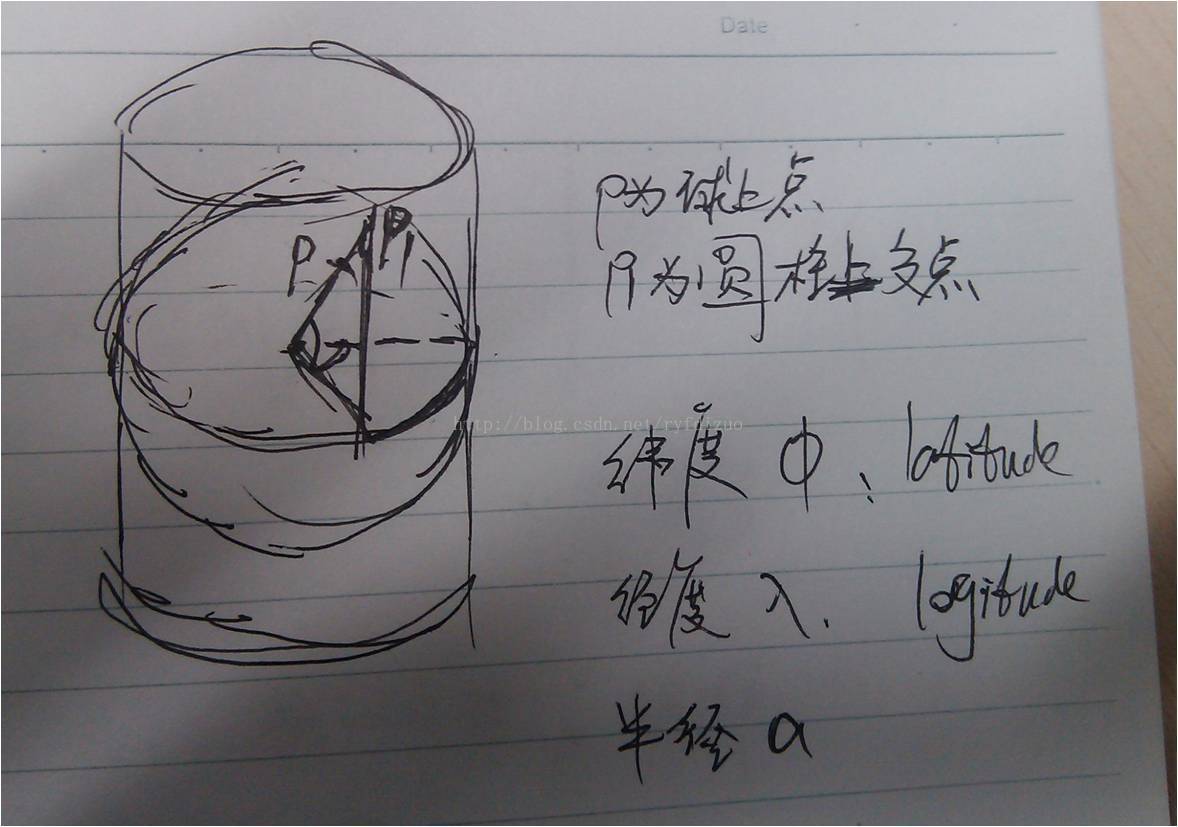 Date
P为球上点
P P1
P1为圆柱上交点
http://blog.csdn.net/ryfdizuo
纬度 φ、latitude
经度 λ. logitude
半径 a